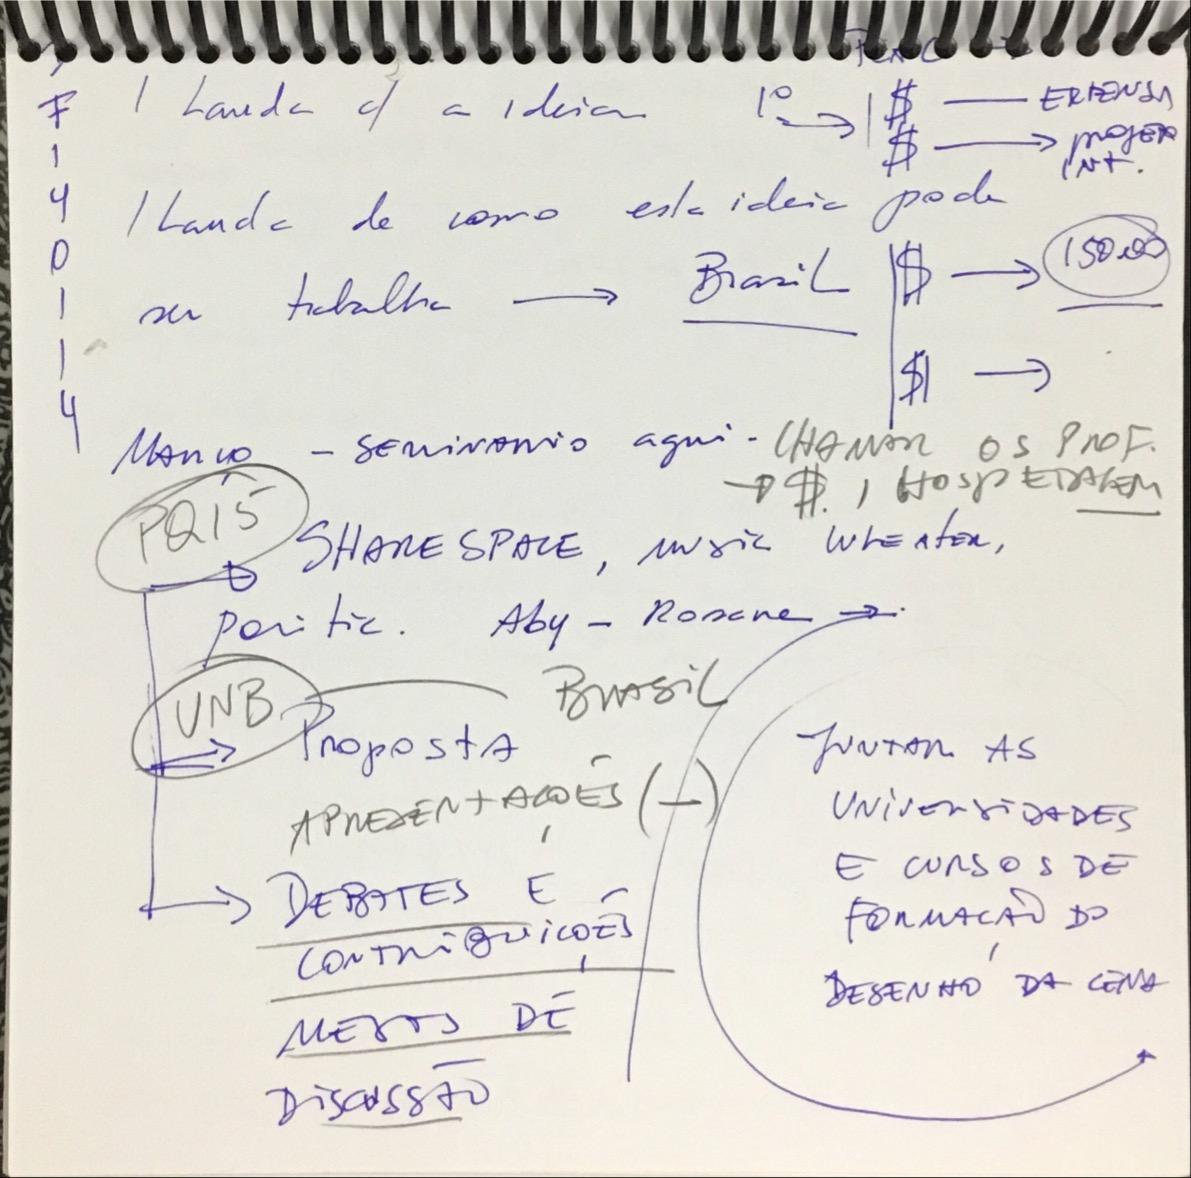 1 Lauda c/ a ideia 1º $ — EXPENSA
$ → PROJETO
INT.
1 Lauda de como esta ideia pode
ser trabalha → Brasil $ → 15000
$ →
7
1
4
0
1
1
4
MARÇO - SEMINARIO aqui - CHAMAR OS PROF.
→ $, HOSPEDAGEM
PQ15
→ SHARESPACE, MUSIC WEATHER,
POLITIC. Aby - Rosane →
UNB BRASIL
→ PROPOSTA
APRESENTAÇÕES (-)
→ DEBATES E
CONTRIBUIÇÕES
MESAS DE
DISCUSSÃO
JUNTAR AS
UNIVERSIDADES
E CURSOS DE
FORMAÇÃO DO
DESENHO DA CENA